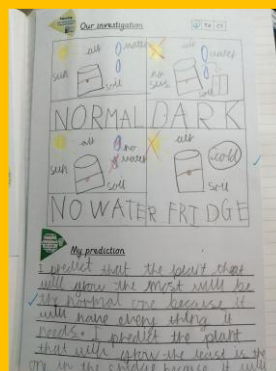 Our investigation
air water
sun
soil
air water
no sun
soil
NORMAL DARK
air
no water
sun
soil
air
cold
soil
NO WATER FRIDGE
My prediction
I predict that the plant that
will grow the most will be
the normal one because it
will have every thing it
needs. I predict the plant
that will grow the least is the
one in the because it will